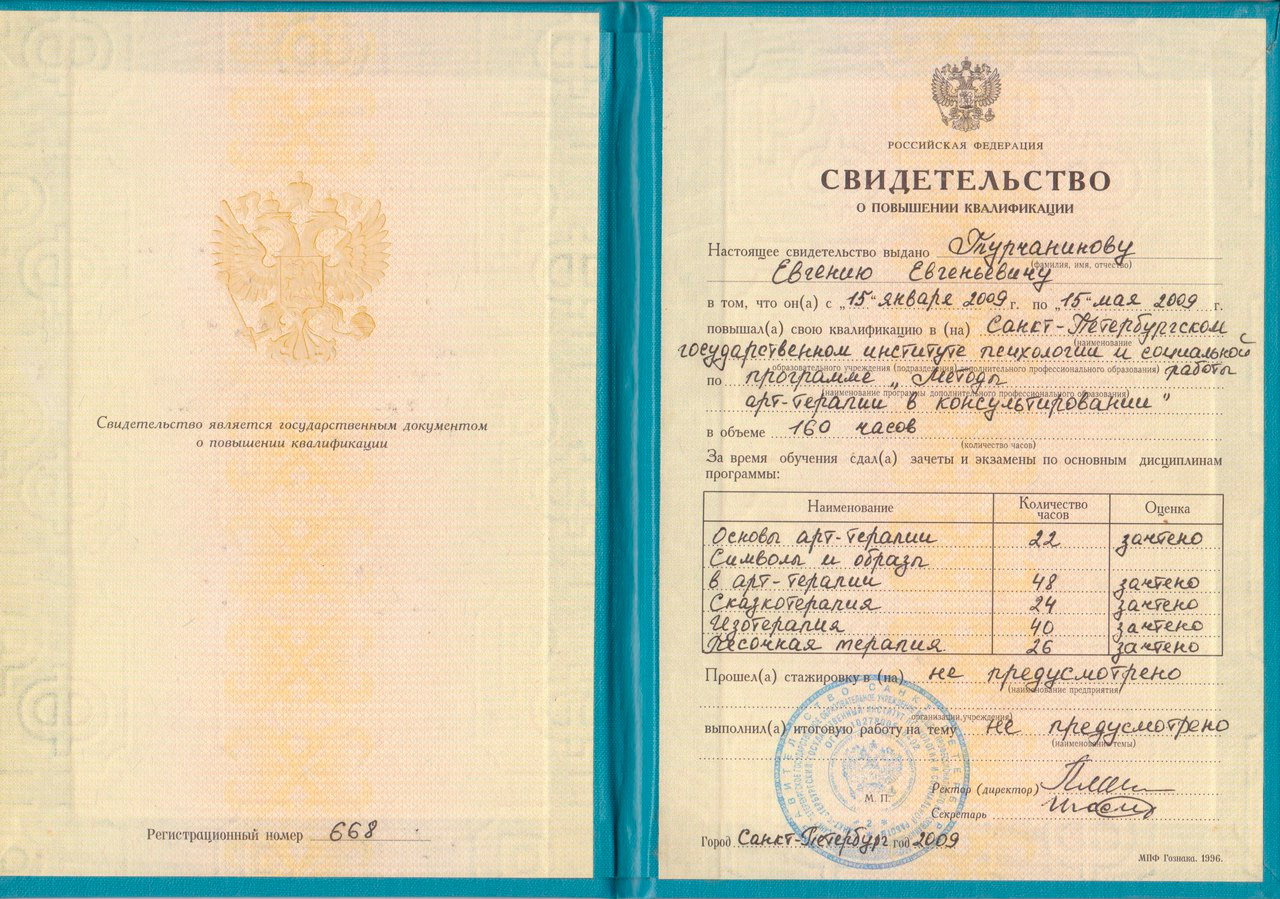 Свидетельство является государственным документом
о повышении квалификации
Регистрационный номер 668
РОССИЙСКАЯ ФЕДЕРАЦИЯ
СВИДЕТЕЛЬСТВО
О ПОВЫШЕНИИ КВАЛИФИКАЦИИ
Настоящее свидетельство выдано Турчанинову
(фамилия, имя, отчество)
Евгению Евгеньевичу
в том, что он(а) с „15“ января 2009 г. по „15“ мая 2009 г.
повышал(а) свою квалификацию в (на) Санкт-Петербургском
(наименование
государственном институте психологии и социальной
образовательного учреждения (подразделения) дополнительного профессионального образования)
работы
по программе „Методы
(наименование программы дополнительного профессионального образования)
арт-терапии в консультировании"
в объеме 160 часов
(количество часов)
За время обучения сдал(а) зачеты и экзамены по основным дисциплинам
программы:
Наименование Количество часов Оценка
Основы арт-терапии 22 зачтено
Символы и образы
в арт-терапии 48 зачтено
Сказкотерапия 24 зачтено
Изотерапия 40 зачтено
Песочная терапия 26 зачтено
Прошел(а) стажировку в (на) не предусмотрено
(наименование предприятия,
организации, учреждения)
выполнил(а) итоговую работу на тему не предусмотрено
(наименование темы)
М. П.
Ректор (директор)
Секретарь
Город Санкт-Петербург год 2009
МПФ Гознака. 1996.